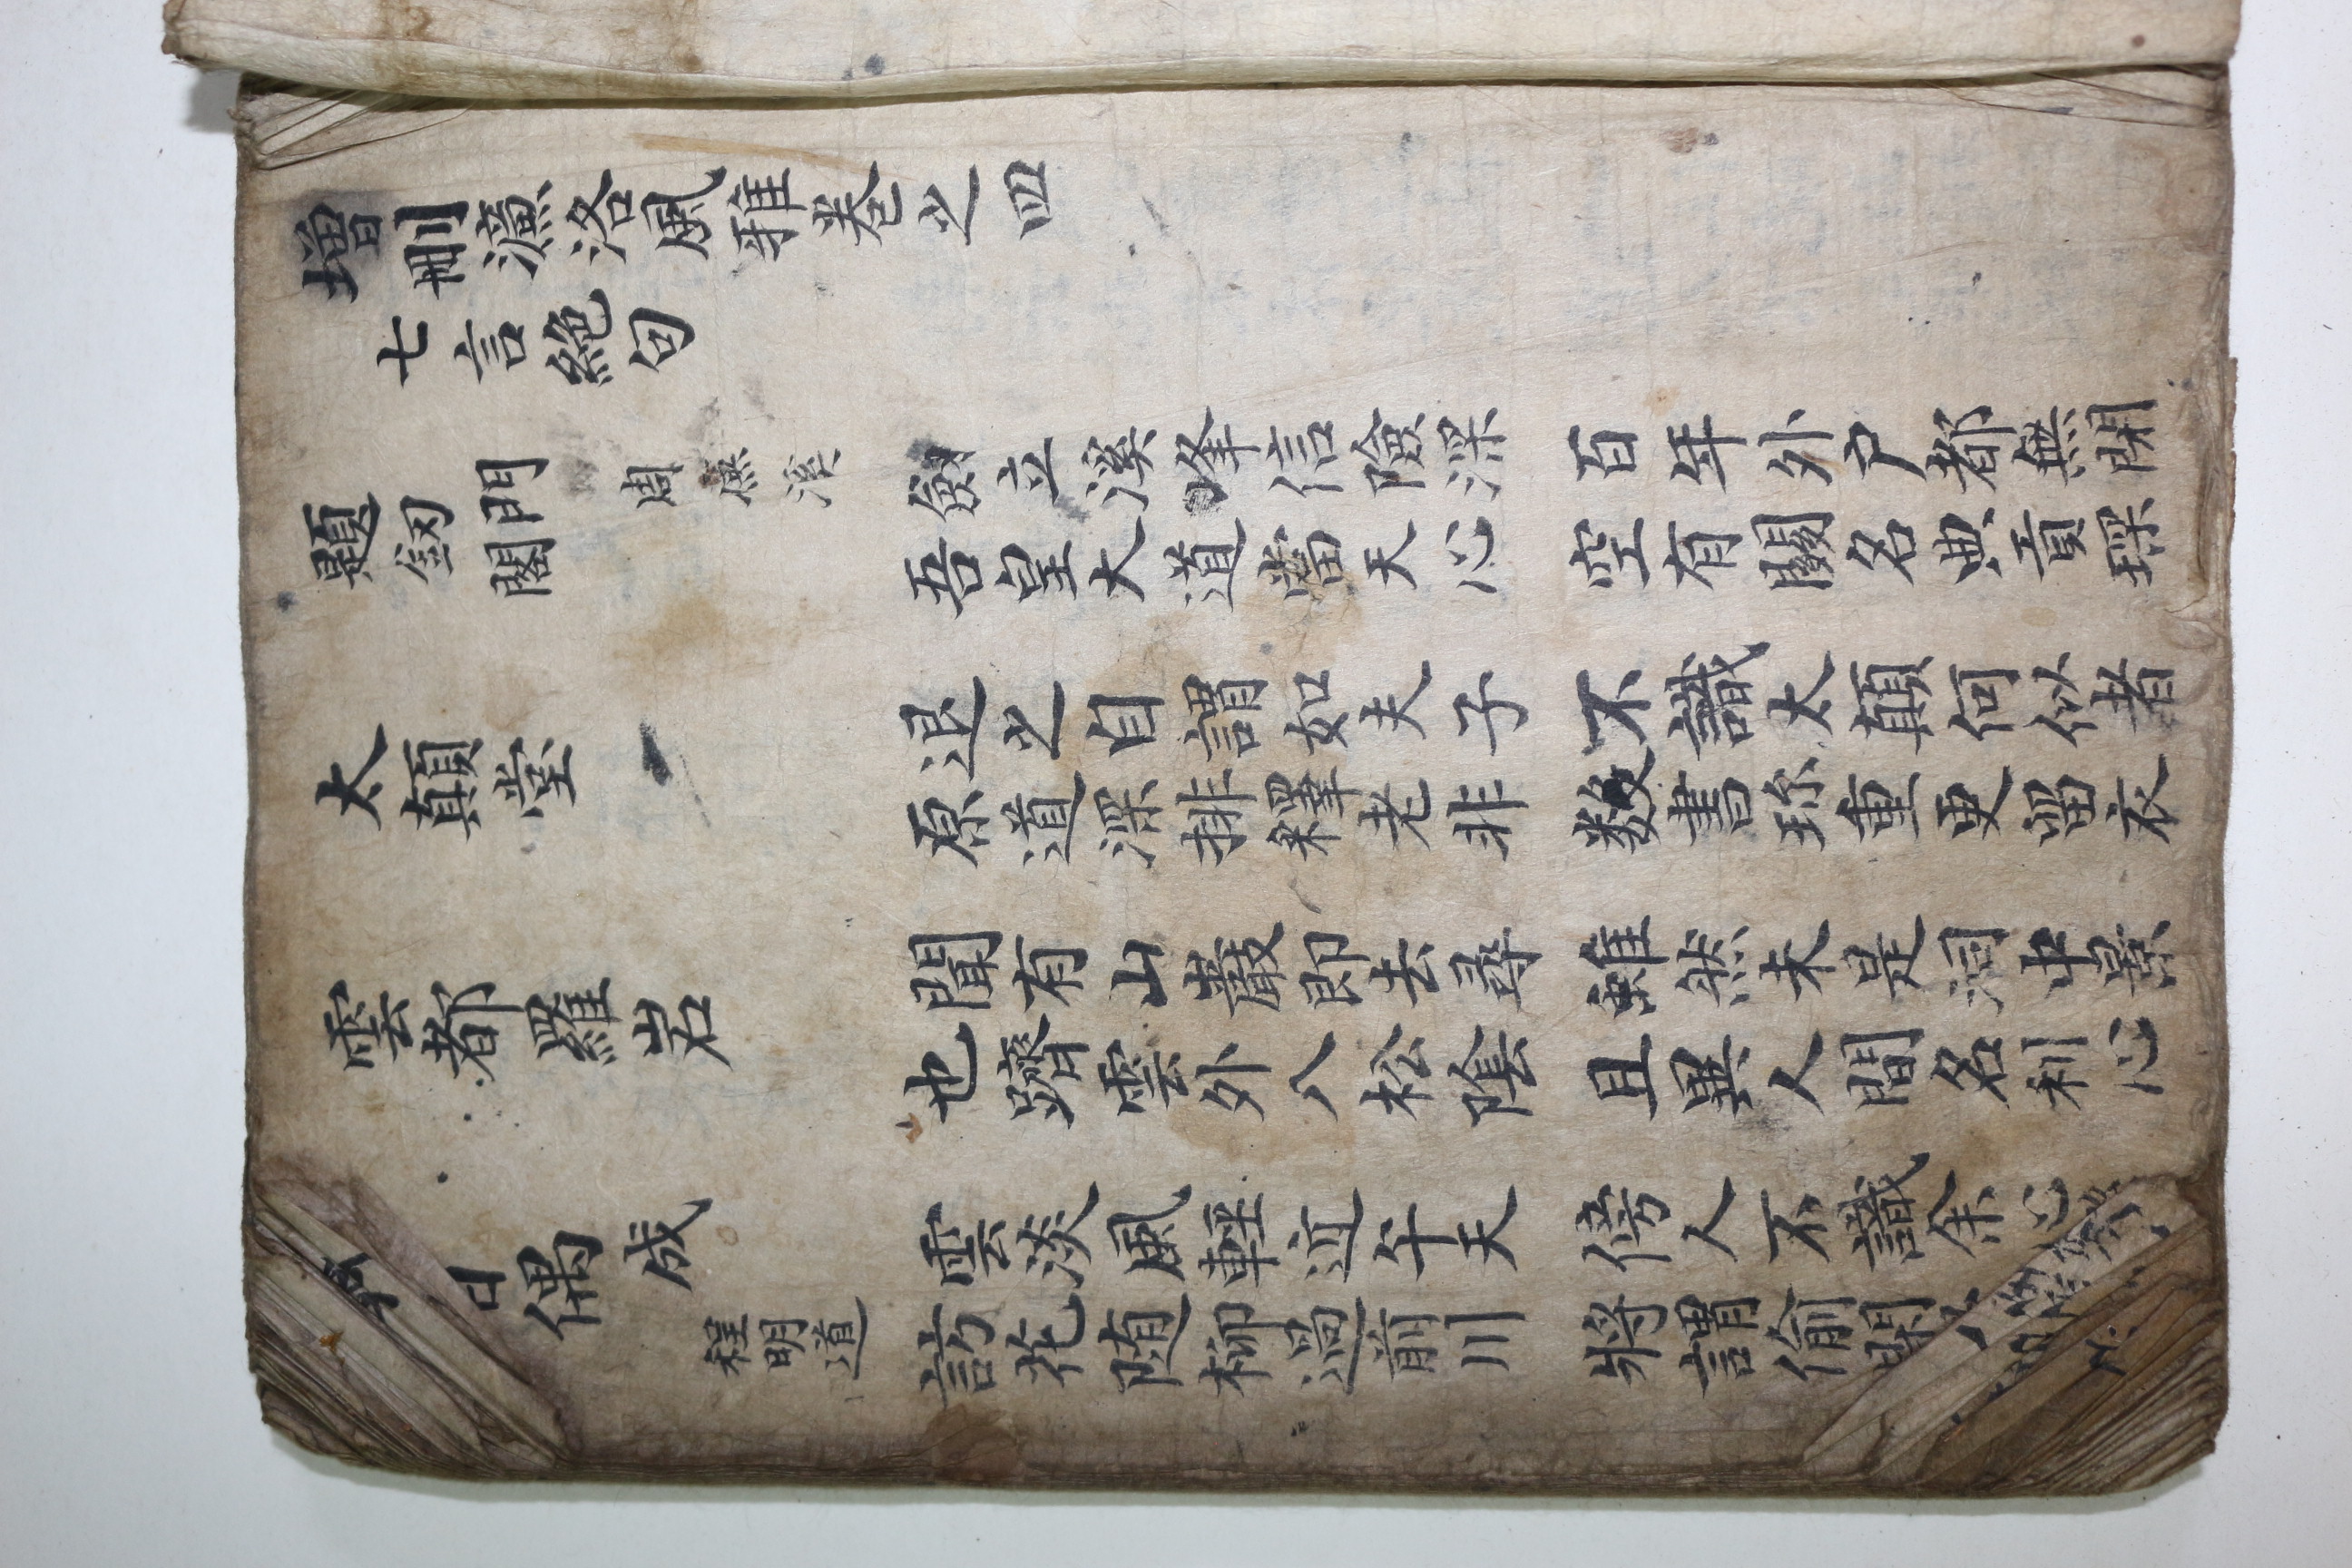 增刪濂洛風雅卷之四
七言絶句
題釼門閣
周濂溪
劔立溪峰信險深 百年外户都無閉
吾皇大道當天心 空有關名典貢琛
太顛堂
退之自謂如夫子 不識太顛何似者
原道深排釋老非 数書珎重更留衣
雲都羅岩
聞有山巖即去尋 雖然未是洞中景
也躋雲外八松陰 且異人間名利心
日偶成
程明道
雲淡風輕近午天 傍人不識余心
訪花随柳過前川 將謂偷閑